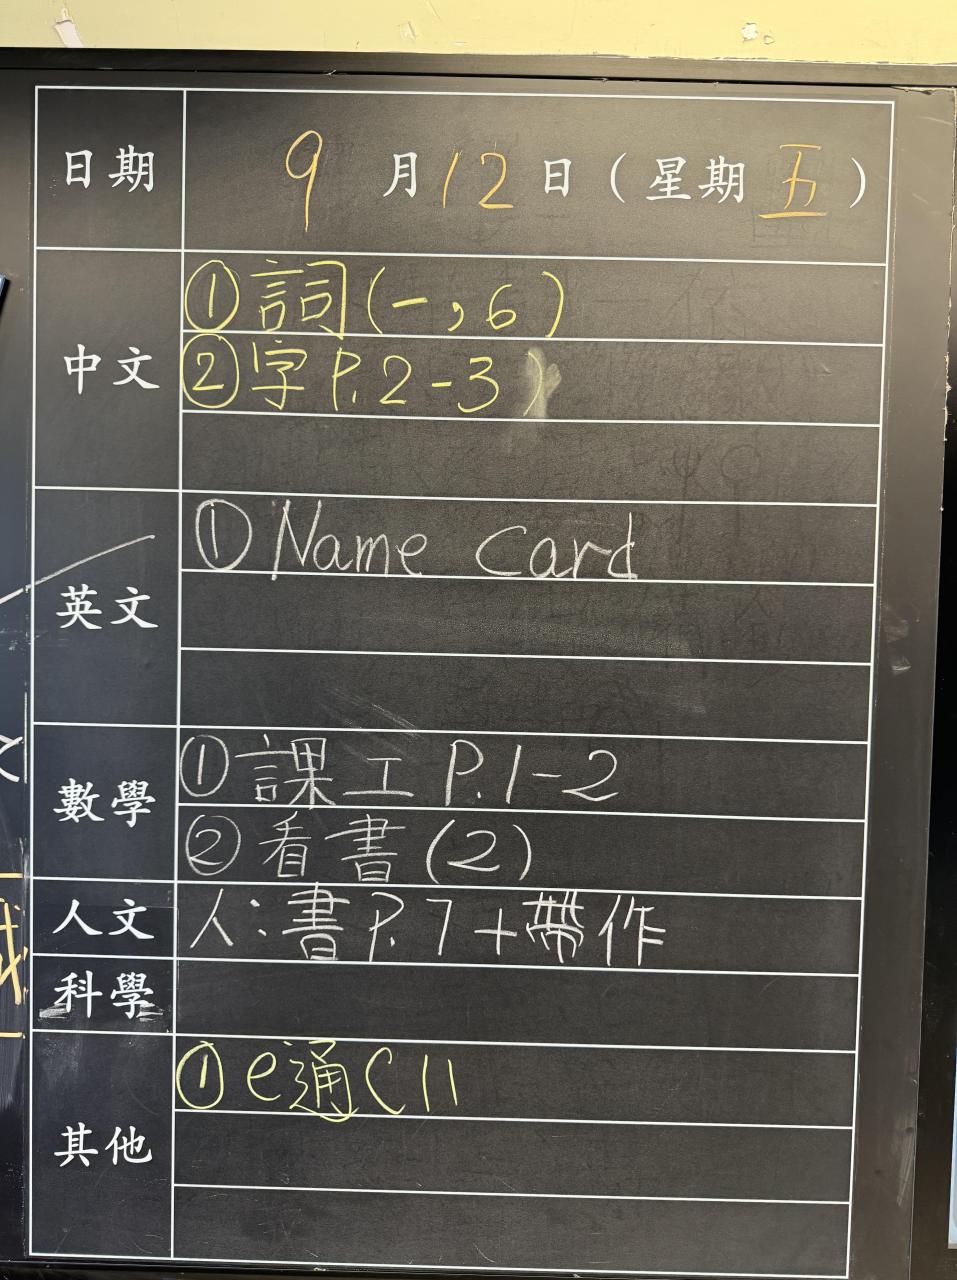 日期 9月12日（星期五）
中文
①詞(一,6)
②字P.2-3)
英文
①Name Card
數學
①課工P.1-2
②看書(2)
人文 人:書P.7+帶作
科學
其他
①e通C11